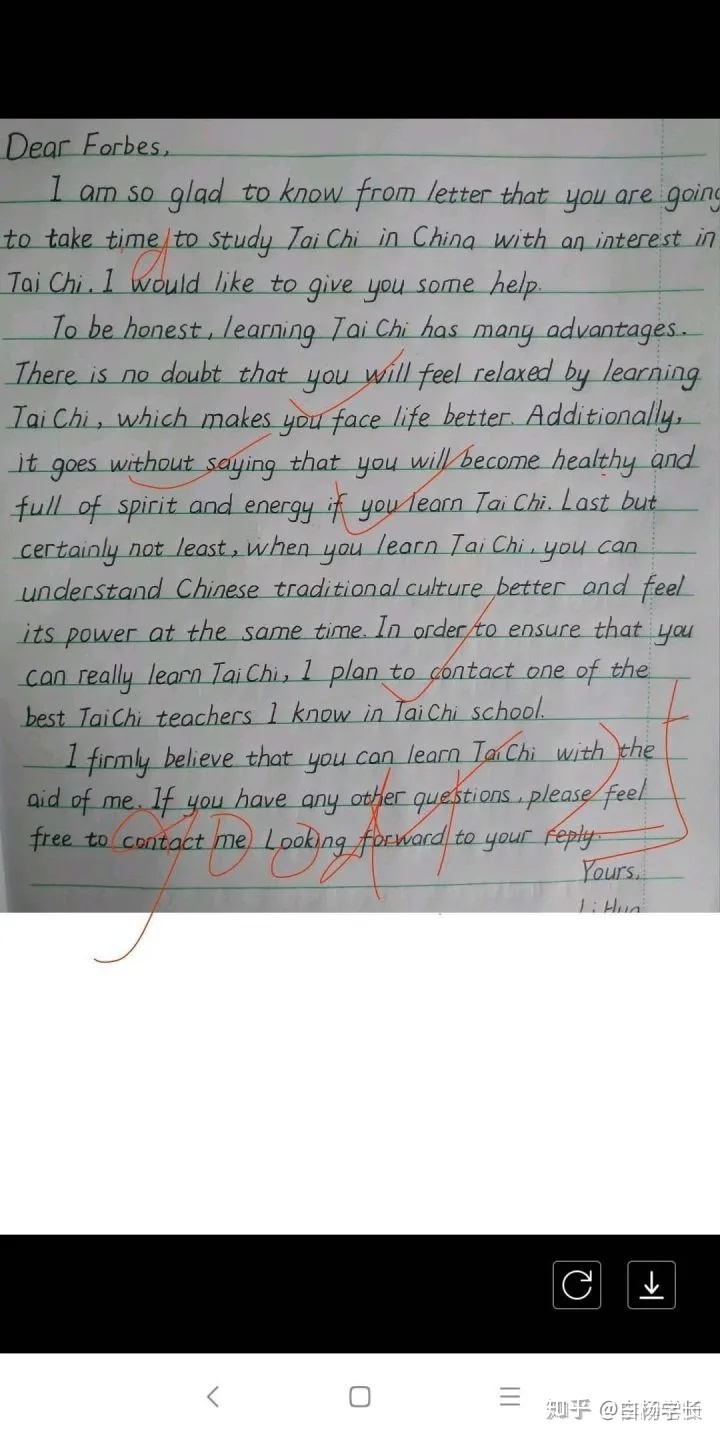 Dear Forbes,
I am so glad to know from letter that you are going
to take time to study Tai Chi in China with an interest in
Tai Chi. I would like to give you some help.
To be honest, learning Tai Chi has many advantages.
There is no doubt that you will feel relaxed by learning
Tai Chi, which makes you face life better. Additionally,
it goes without saying that you will become healthy and
full of spirit and energy if you learn Tai Chi. Last but
certainly not least, when you learn Tai Chi, you can
understand Chinese traditional culture better and feel
its power at the same time. In order to ensure that you
can really learn Tai Chi, I plan to contact one of the
best Tai Chi teachers I know in Tai Chi school.
I firmly believe that you can learn Tai Chi with the
aid of me. If you have any other questions, please feel
free to contact me. Looking forward to your reply.
good! 25
Yours,
Li Hua
知乎 @白杨学长